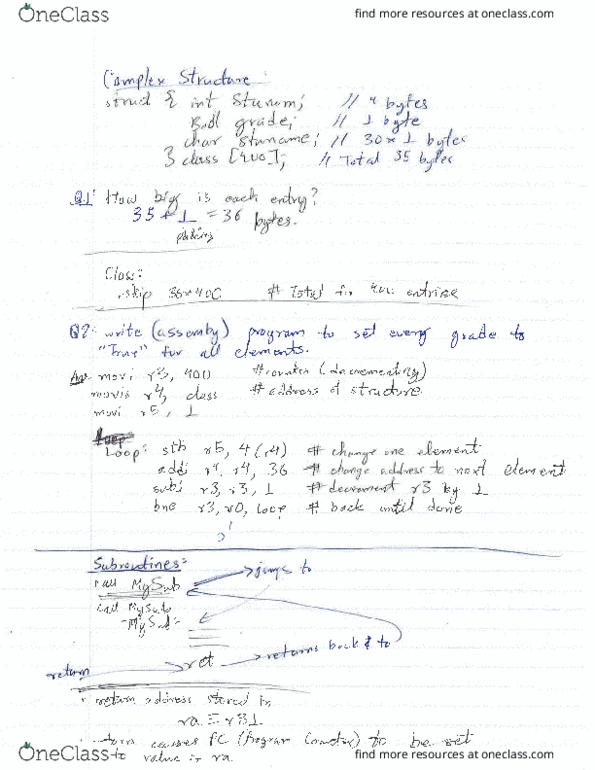 OneClass
find more resources at oneclass.com
Complex Structure:
struct { int stunum; // 4 bytes
Bool grade; // 1 byte
char stuname; // 30 × 1 bytes
} class [400]; // Total 35 bytes
Q1: How big is each entry?
35 + 1 = 36 bytes.
Class:
.skip 36*400 # Total for entries
Q2: write (assemby) program to set every grade to
"True" for all elements.
Ans: movi r3, 400 # counter (decrementing)
movia r4, class # address of structure
movi r5, 1
Loop
Loop: stb r5, 4(r4) # change one element
addi r4, r4, 36 # change address to next element
subi r3, r3, 1 # decrement r3 by 1
bne r3, r0, loop # back until done
0
Subroutines:
call MySub jumps to
call MySub
MySub:
return ret returns back to
return address stored in
ra = r31
causes PC (Program Counter) to be set
to value in ra
OneClass
find more resources at oneclass.com